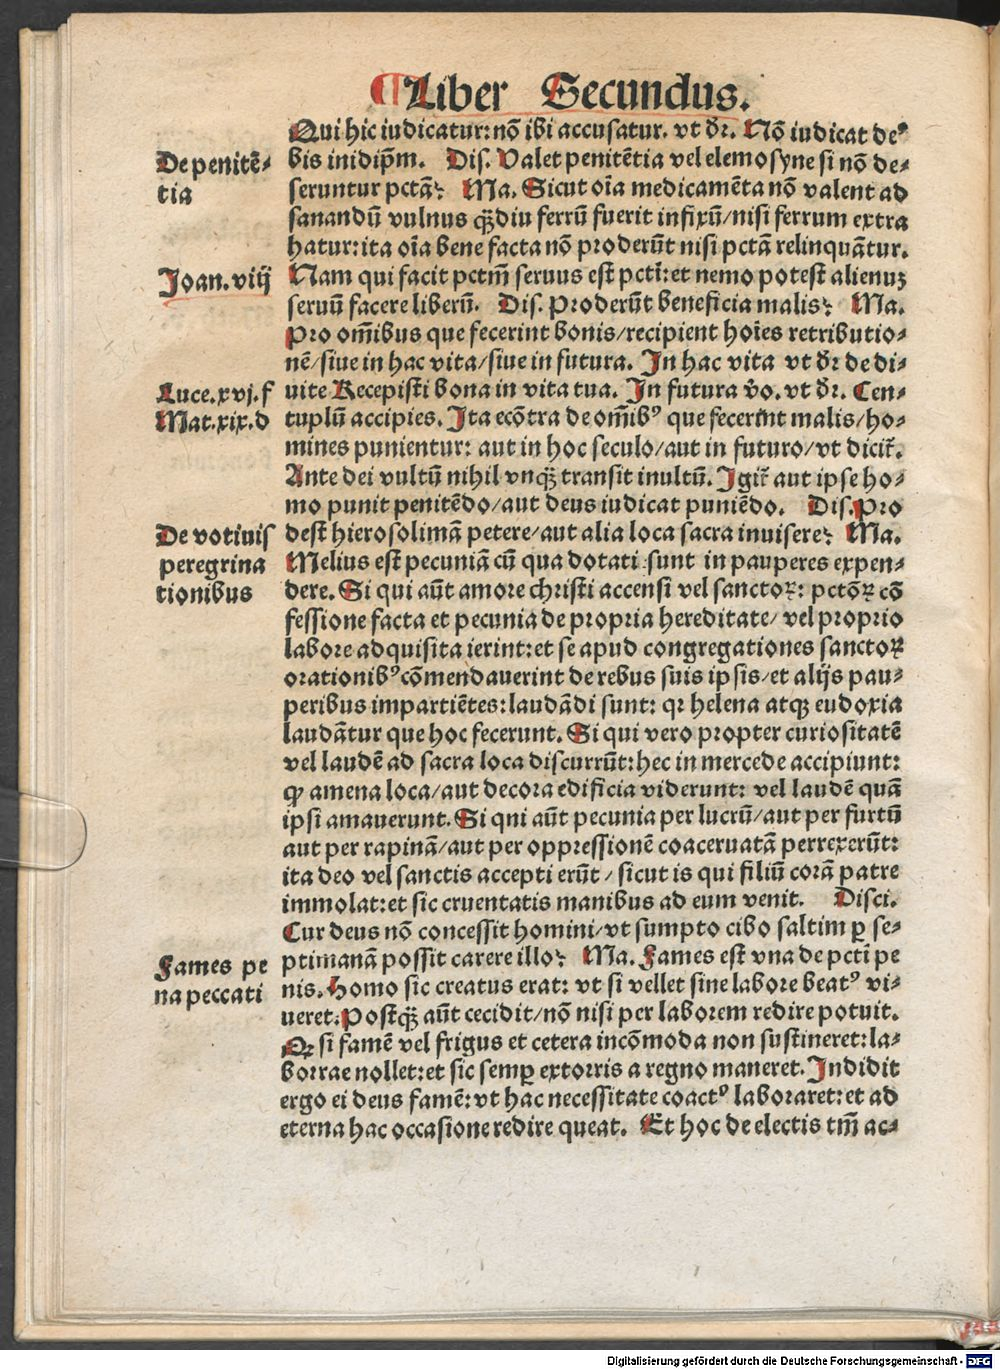 ¶ Liber Secundus.
Qui hic iudicatur: nō ibi accusatur. vt dr̄. Nō iudicat deꝰ
De penitē-
tia
bis in idip̄m. Dis. Valet penitētia vel elemosyne si nō de-
seruntur pctā? Ma. Sicut oīa medicamēta nō valent ad
sanandū vulnus qȝ̄diu ferrū fuerit infixū/nisi ferrum extra
hatur: ita oīa bene facta nō proderūt nisi pctā relinquātur.
Joan. viij
Nam qui facit pctm̄ seruus est pcti: et nemo potest alienuȝ
seruū facere liberū. Dis. Proderūt beneficia malis? Ma.
Pro om̄ibus que fecerint bonis/recipient hoīes retributio-
nē/siue in hac vita/siue in futura. In hac vita vt dr̄ de di-
Luce. xvj. f
Mat. xix. d
uite Recepisti bona in vita tua. In futura v̄o. vt dr̄. Cen-
tuplū accipies. Ita ecōtra de om̄ibꝰ que fecerint malis/ho-
mines punientur: aut in hoc seculo/aut in futuro/vt dicit̄.
Ante dei vultū nihil vnqȝ̄ transit inultū. Igit̄ aut ipse ho-
mo punit penitēdo/aut deus iudicat puniēdo. Dis. Pro
De votiuis
peregrina
tionibus
dest hierosolimā petere/aut alia loca sacra inuisere? Ma.
Melius est pecuniā cū qua dotati sunt in pauperes expen-
dere. Si qui aūt amore christi accensi vel sanctoꝝ: pctōꝝ cō
fessione facta et pecunia de propria hereditate/vel proprio
labore adquisita ierint: et se apud congregationes sanctoꝝ
orationibꝰ cōmendauerint de rebus suis ipsis/et alijs pau-
peribus impartiētes: laudādi sunt: qꝛ helena atqȝ eudoxia
laudātur que hoc fecerunt. Si qui vero propter curiositatē
vel laudē ad sacra loca discurrūt: hec in mercede accipiunt:
ꝙ amena loca/aut decora edificia viderunt: vel laudē quā
ipsi amauerunt. Si qni aūt pecunia per lucrū/aut per furtū
aut per rapinā/aut per oppressionē coaceruatā perrexerūt:
ita deo vel sanctis accepti erūt/sicut is qui filiū corā patre
immolat: et sic cruentatis manibus ad eum venit. Disci.
Cur deus nō concessit homini/vt sumpto cibo saltim ꝑ se-
Fames pe
na peccati
ptimanā possit carere illo? Ma. Fames est vna de pcti pe
nis. Homo sic creatus erat: vt si vellet sine labore beatꝰ vi-
ueret. Postqȝ̄ aūt cecidit/nō nisi per laborem redire potuit.
Qꝛ si famē vel frigus et cetera incōmoda non sustineret: la-
borrae nollet: et sic semꝑ extorris a regno maneret. Indidit
ergo ei deus famē: vt hac necessitate coactꝰ laboraret: et ad
eterna hac occasione redire queat. Et hoc de electis tm̄ ac-
Digitalisierung gefördert durch die Deutsche Forschungsgemeinschaft - DFG